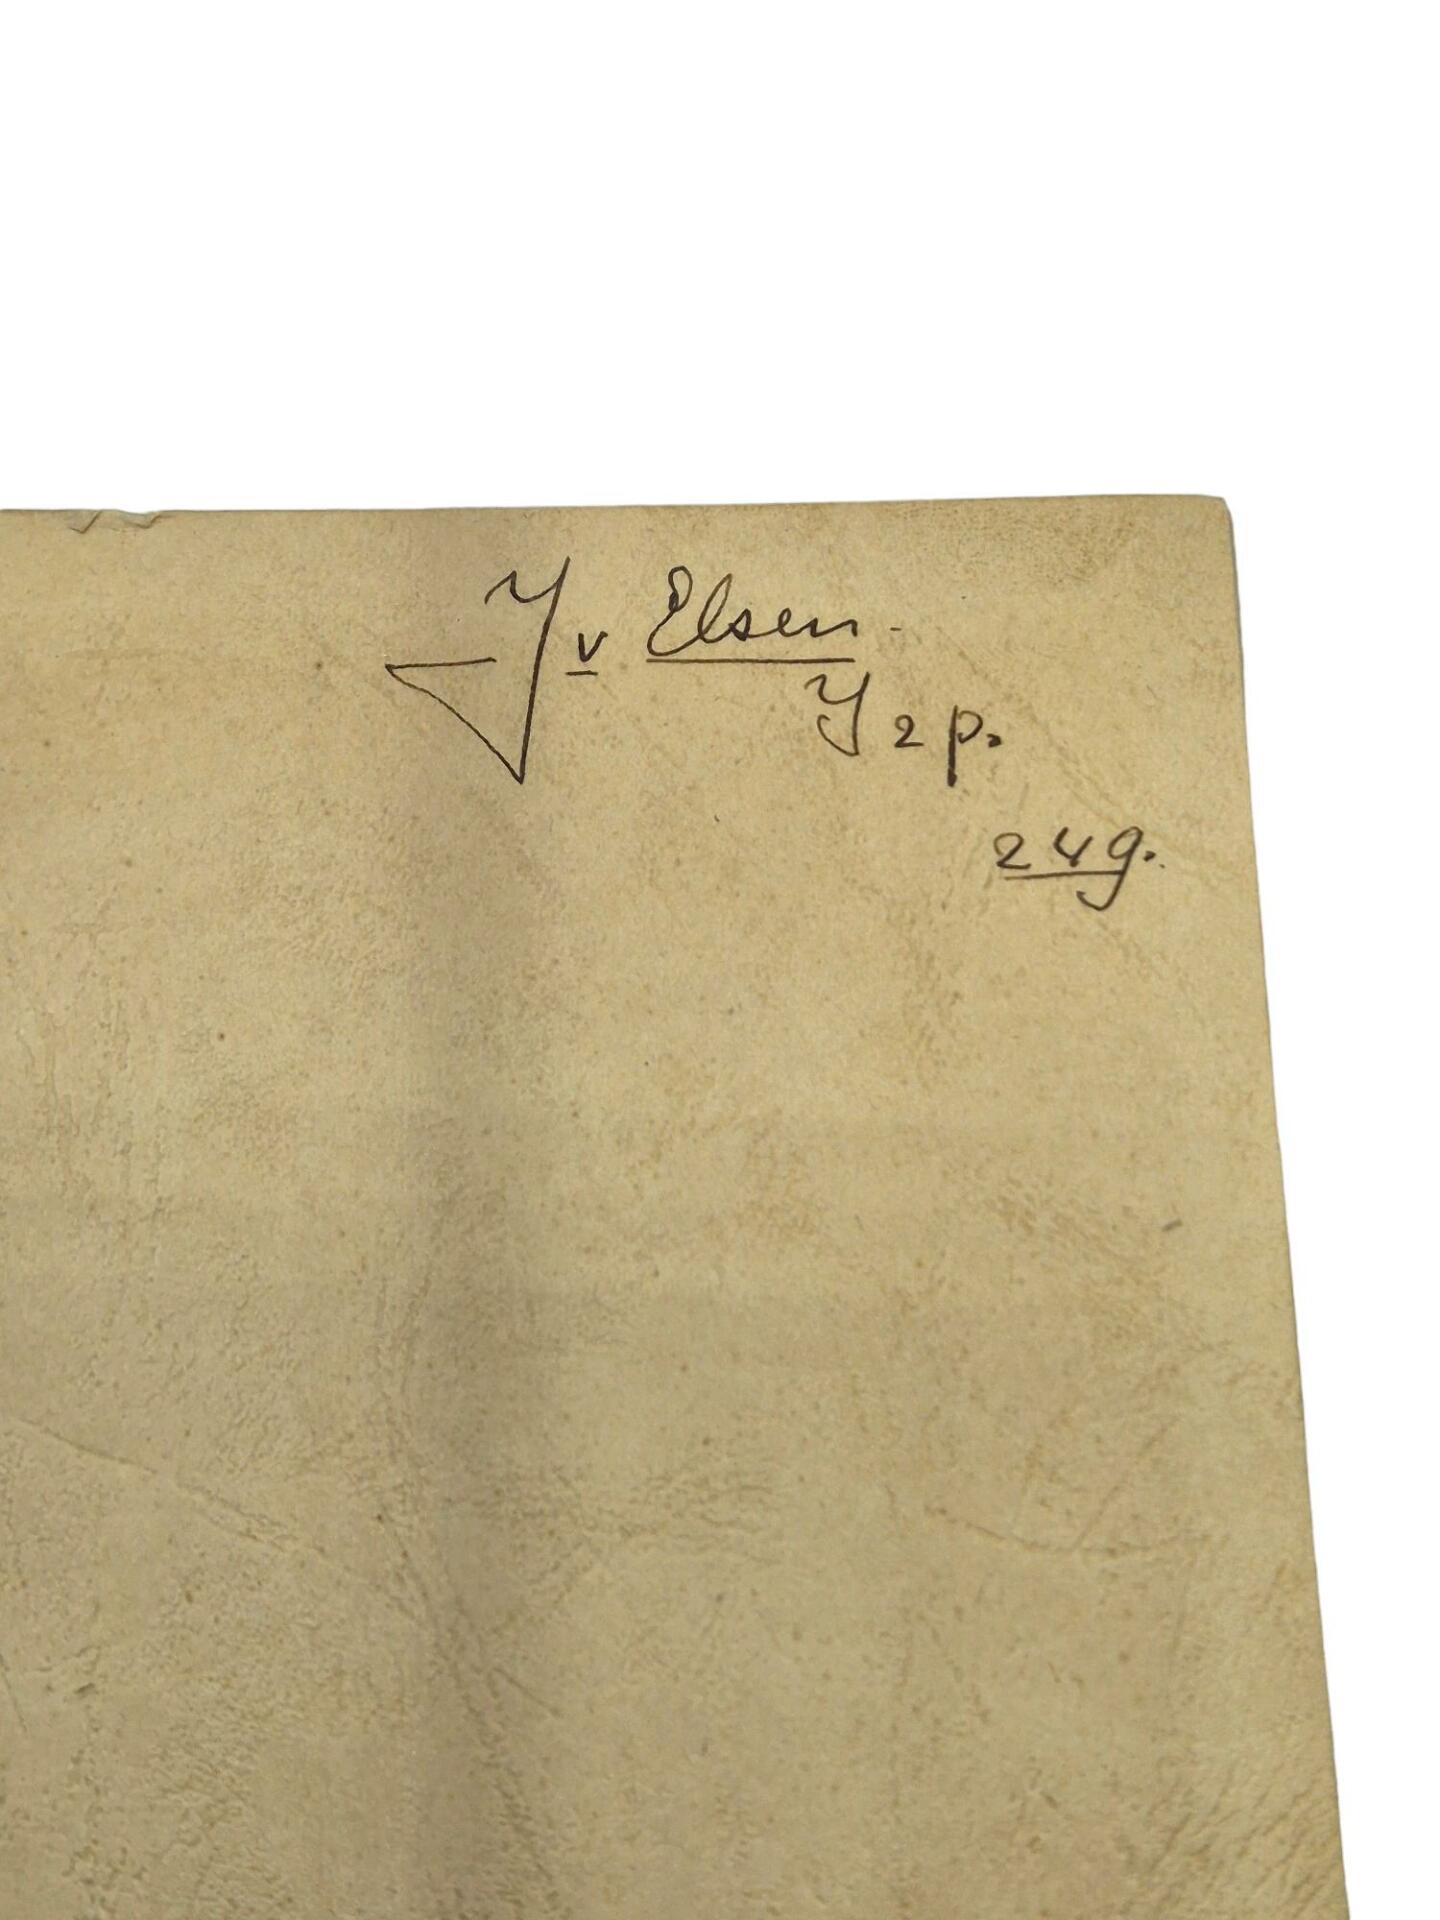 J v Elsen.
J 2 p.
249.